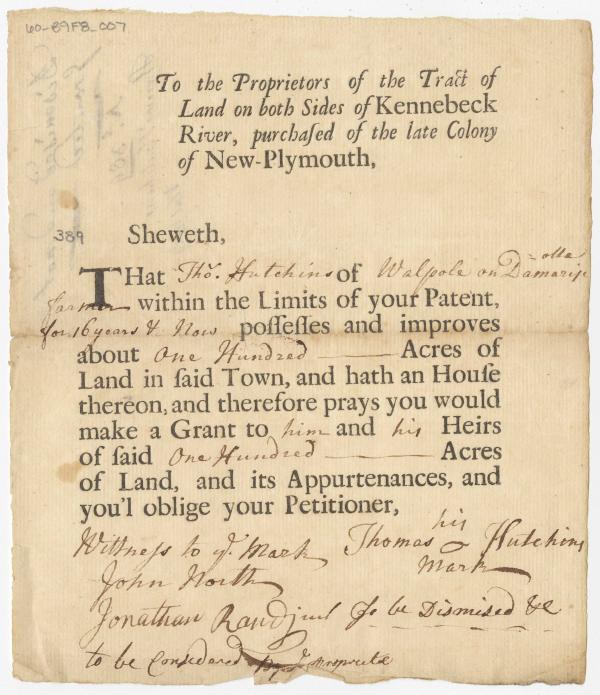 60-89F8_007
To the Proprietors of the Tract of
Land on both Sides of Kennebeck
River, purchaſed of the late Colony
of New-Plymouth,
389
Sheweth,
THat Tho.ˢ Hutchins of Walpole on Damariſcotta
farmer within the Limits of your Patent,
for 16 years & Now poſſeſſes and improves
about One Hundred ——— Acres of
Land in ſaid Town, and hath an Houſe
thereon, and therefore prays you would
make a Grant to him and his Heirs
of ſaid One Hundred ——— Acres
of Land, and its Appurtenances, and
you'l oblige your Petitioner,
Wittneſs to yᵉ Mark Thomas his Mark Hutchins
John North
Jonathan Rand to be Dismised &c
to be Considered